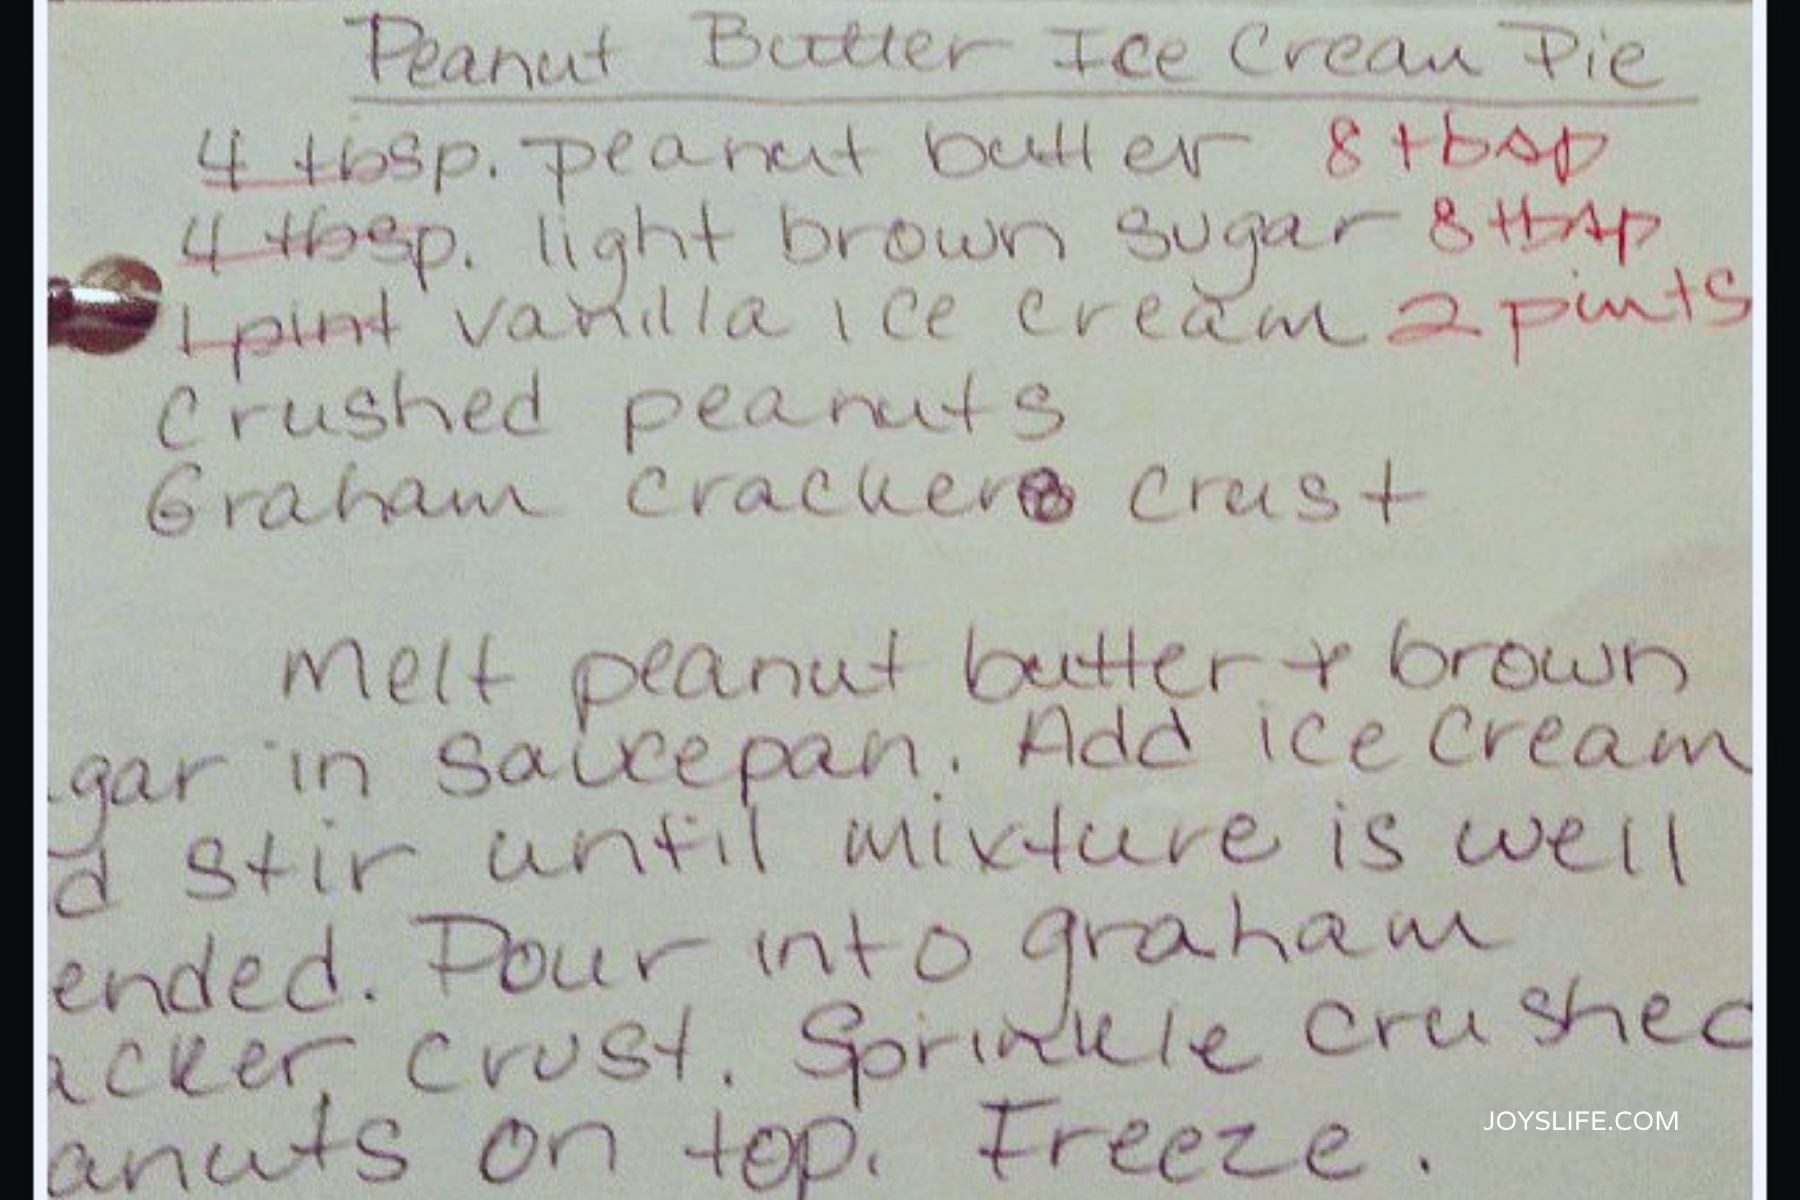 Peanut Butter Ice Cream Pie
4 tbsp. peanut butter 8 tbsp
4 tbsp. light brown sugar 8 tbsp
1 pint vanilla ice cream 2 pints
Crushed peanuts
Graham cracker crust
Melt peanut butter + brown
gar in saucepan. Add ice cream
d stir until mixture is well
ended. Pour into graham
acker crust. Sprinkle crushed
anuts on top. Freeze.
JOYSLIFE.COM